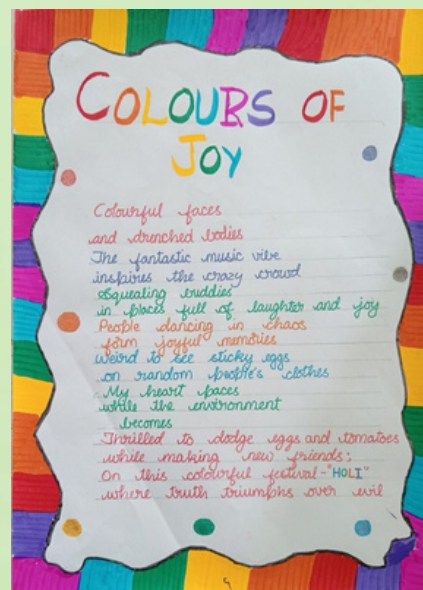 COLOURS OF
JOY
Colourful faces
and drenched bodies
The fantastic music vibe
inspires the crazy crowd
Squealing buddies
in places full of laughter and joy
People dancing in chaos
form joyful memories
Weird to see sticky eggs
on random people's clothes
My heart paces
while the environment
becomes
Thrilled to dodge eggs and tomatoes
while making new friends:
On this colourful festival-"HOLI"
where truth triumphs over evil